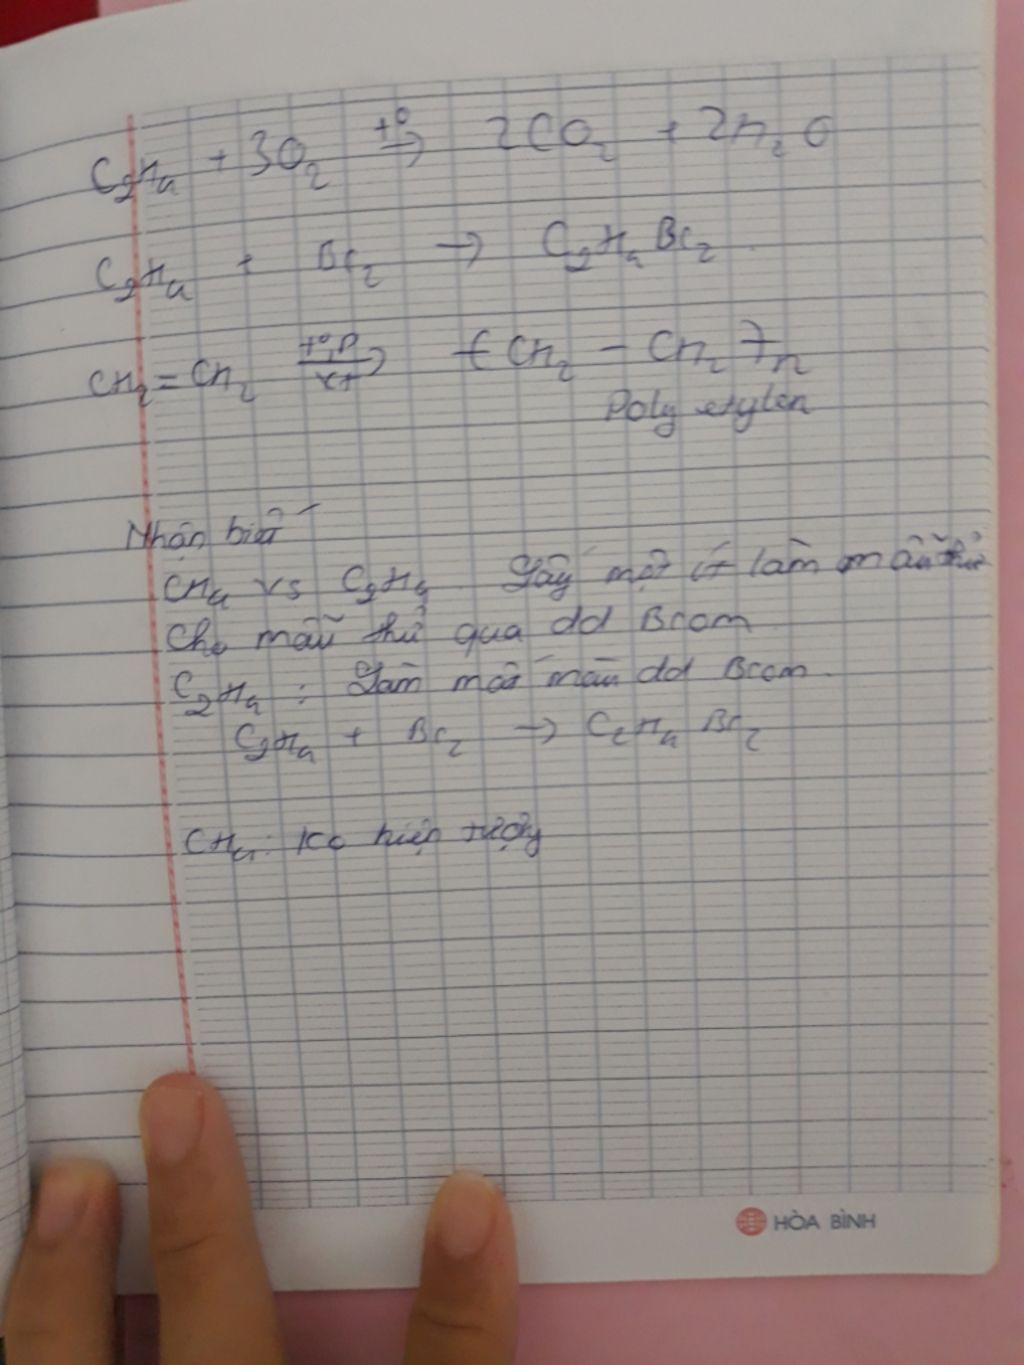 C₂H₄ + 3O₂ →(t°) 2CO₂ + 2H₂O
C₂H₄ + Br₂ → C₂H₄Br₂
CH₂ = CH₂ →(t°, P / xt) (CH₂ – CH₂)n
Poly etylen
Nhận biết
CH₄ vs C₂H₄ Lấy một ít làm mẫu thử
Cho mẫu thử qua dd Brom
C₂H₄ : Làm mất màu dd Brom
C₂H₄ + Br₂ → C₂H₄Br₂
CH₄ : Ko hiện tượng
HÒA BÌNH